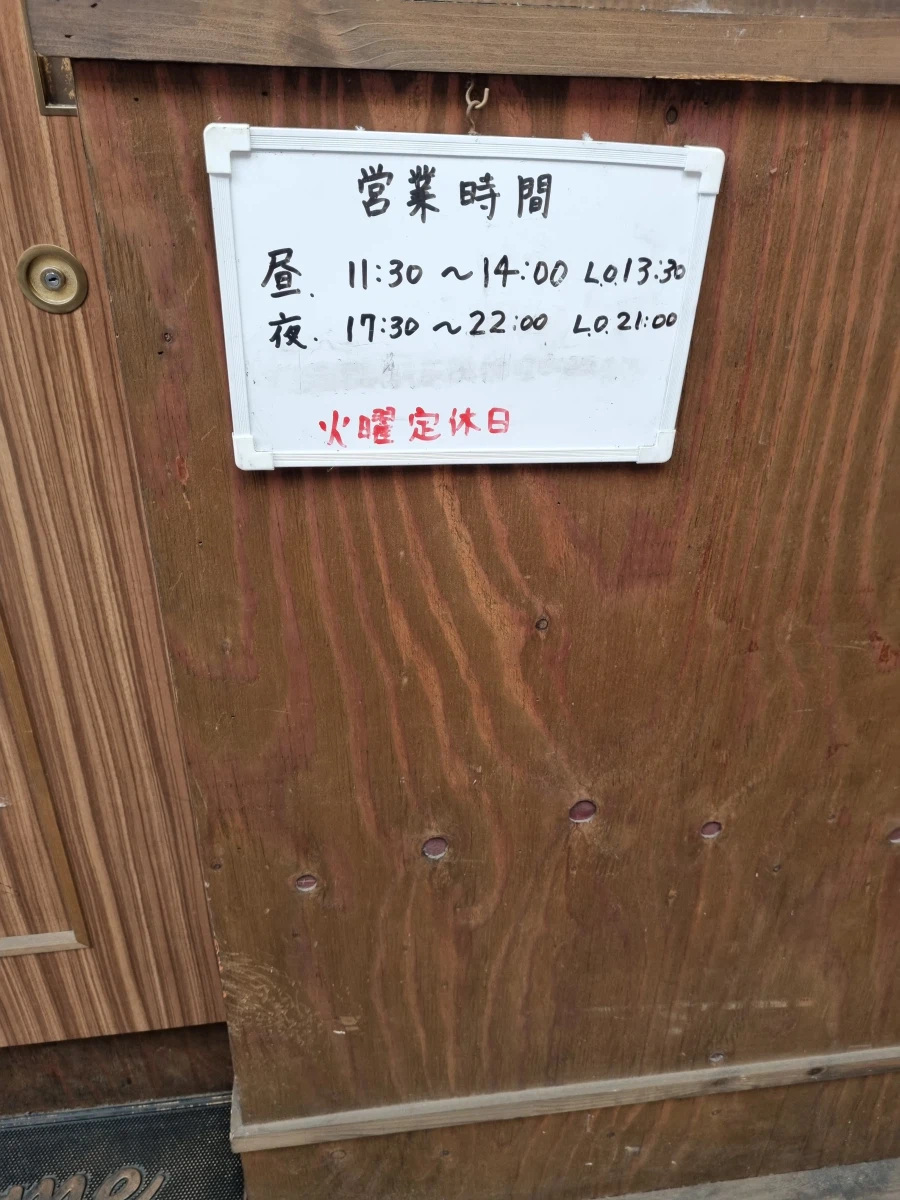 営業時間
昼. 11:30 ～14:00 L.O.13:30
夜. 17:30 ～22:00 L.O.21:00
火曜定休日